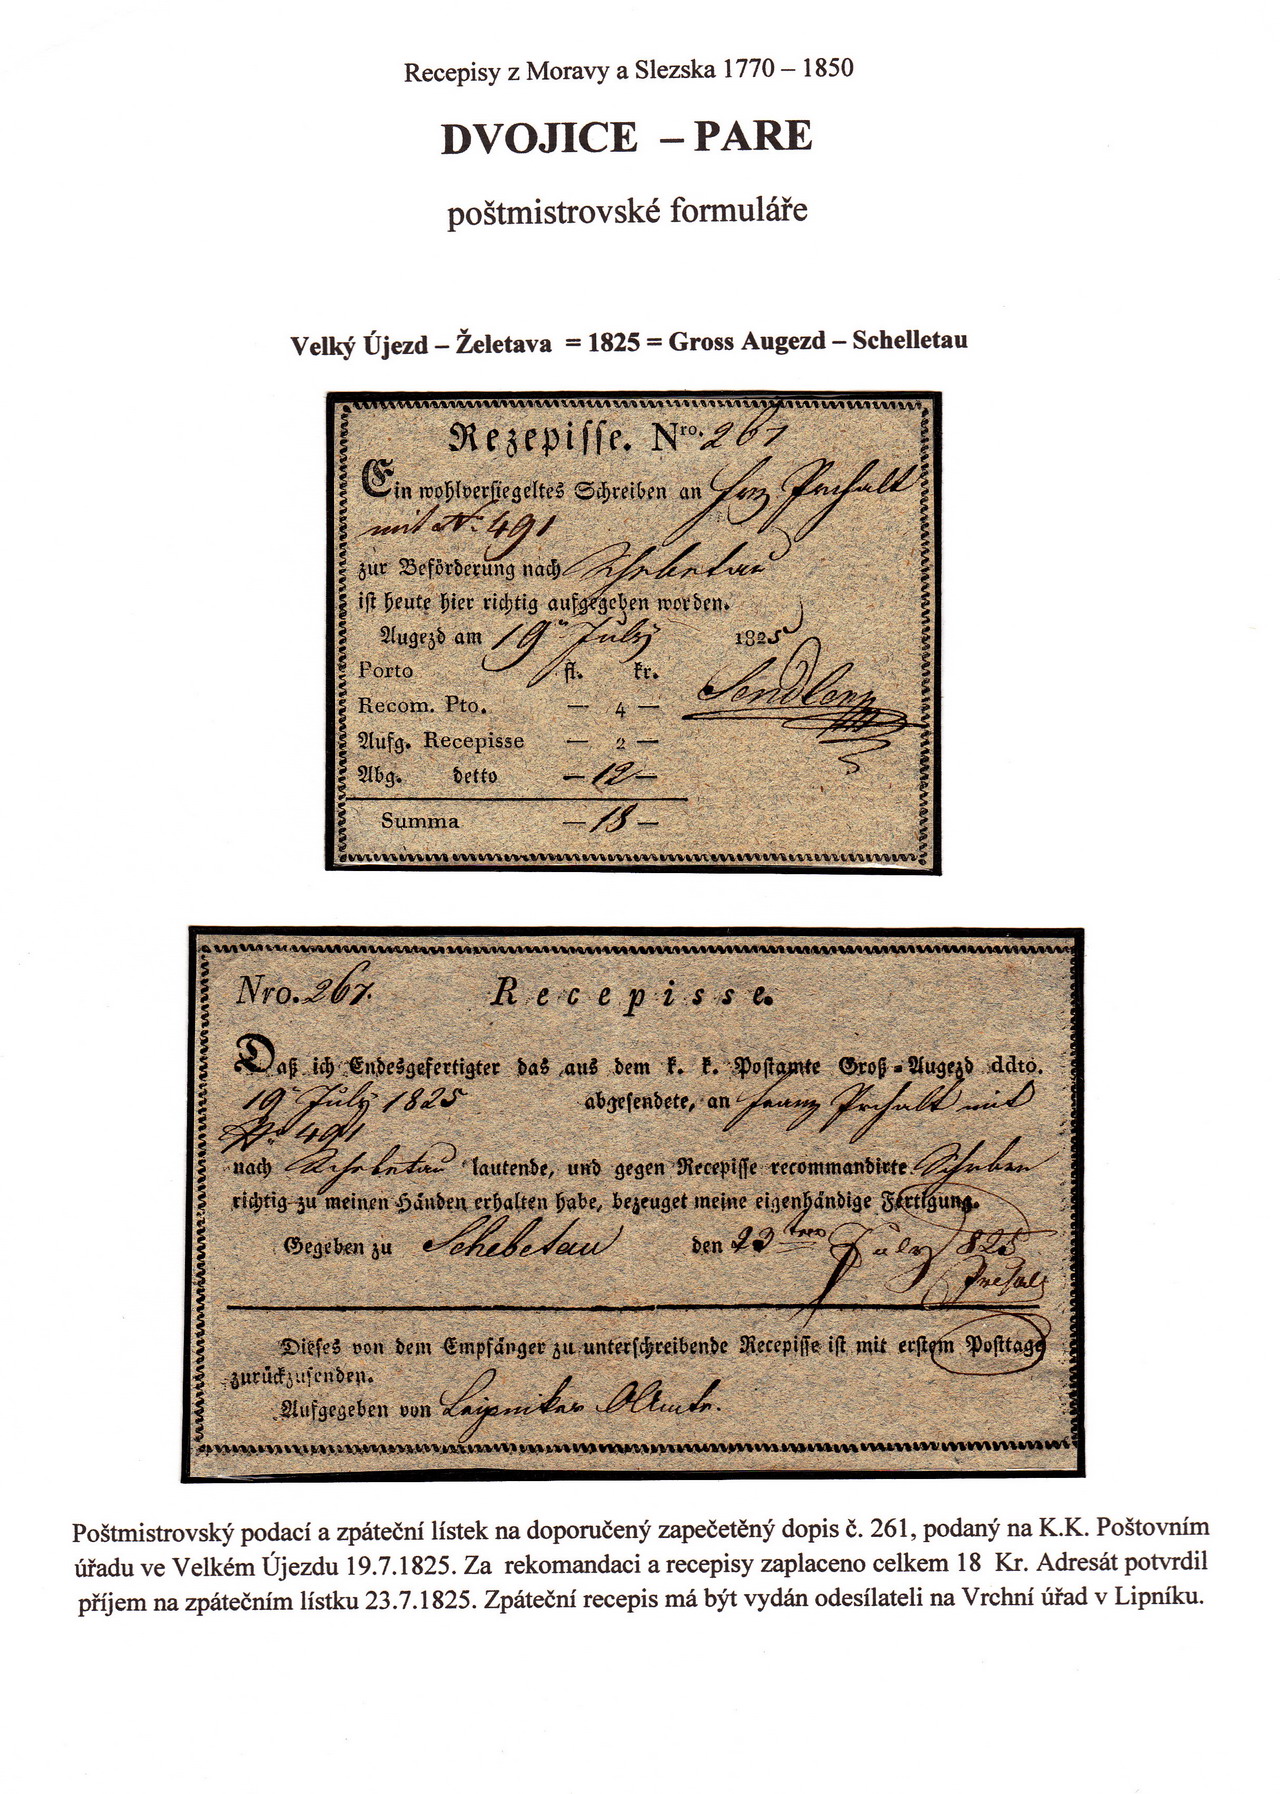 Recepisy z Moravy a Slezska 1770 – 1850
DVOJICE – PARE
poštmistrovské formuláře
Velký Újezd – Želetava = 1825 = Gross Augezd – Schelletau
Rezepisse. Nro. 267
Ein wohlversiegeltes Schreiben an
mit No. 491
zur Beförderung nach Schebetau
ist heute hier richtig aufgegeben worden.
Augezd am 19 July 1825
Porto fl. kr.
Recom. Pto. — 4 —
Aufg. Recepisse — 2 —
Abg. detto — 12 —
Summa — 18 —
Nro. 267. Recepisse.
Daß ich Endesgefertigter das aus dem k. k. Postamte Groß-Augezd ddto.
19 July 1825 abgesendete, an Franz Prchalt mit
No 491
nach Schebetau lautende, und gegen Recepisse recommandirte Schreiben
richtig zu meinen Händen erhalten habe, bezeuget meine eigenhändige Fertigung.
Gegeben zu Schebetau den 23 ten July 825
Dieses von dem Empfänger zu unterschreibende Recepisse ist mit erstem Posttage
zurückzusenden.
Aufgegeben von Leipniker OAmte.
Poštmistrovský podací a zpáteční lístek na doporučený zapečetěný dopis č. 261, podaný na K.K. Poštovním
úřadu ve Velkém Újezdu 19.7.1825. Za rekomandaci a recepisy zaplaceno celkem 18 Kr. Adresát potvrdil
příjem na zpátečním lístku 23.7.1825. Zpáteční recepis má být vydán odesílateli na Vrchní úřad v Lipníku.